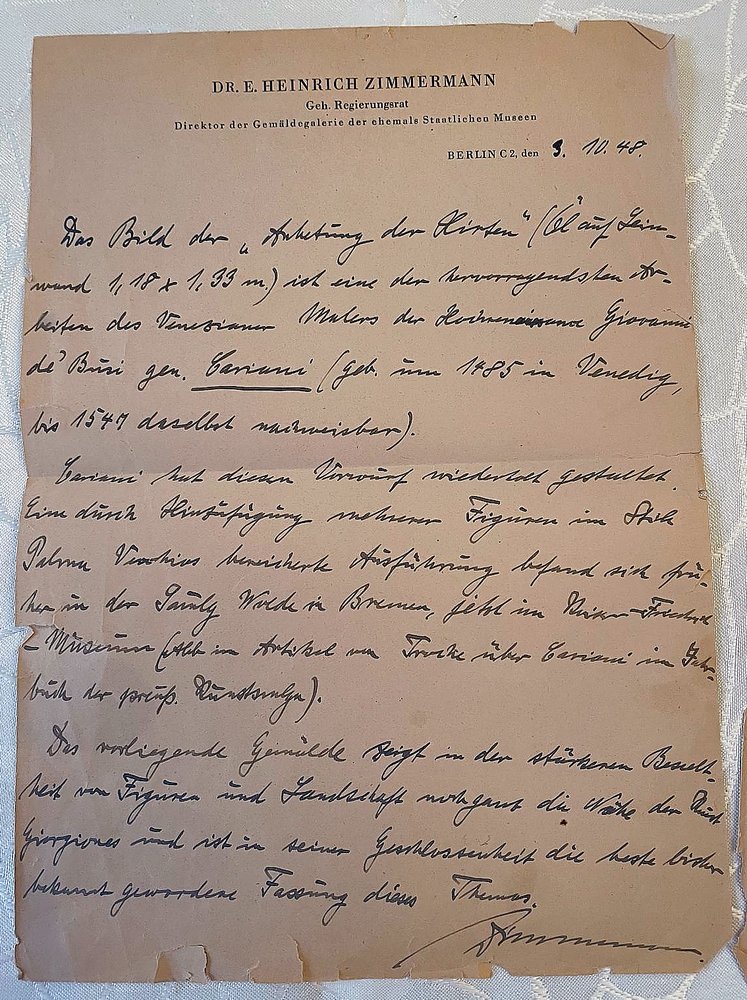 DR. E. HEINRICH ZIMMERMANN
Geh. Regierungsrat
Direktor der Gemäldegalerie der ehemals Staatlichen Museen
BERLIN C 2, den 9. 10. 48.
Das Bild der „Anbetung der Hirten" (Öl auf Lein-
wand 1,18 x 1,33 m.) ist eine der hervorragendsten Ar-
beiten des Venezianer Malers der Hochrenaissance Giovanni
de' Busi gen. Cariani (geb. um 1485 in Venedig,
bis 1547 daselbst nachweisbar).
Cariani hat diesen Vorwurf wiederholt gestaltet.
Eine durch Hinzufügung mehrerer Figuren im Stile
Palma Vecchios bereicherte Ausführung befand sich frü-
her in der Smlg Wolde in Bremen, jetzt im Kaiser-Friedrich
- Museum (Abb im Artikel von Troche über Cariani im Jahr-
buch der preuß. Kunstsmlgn).
Das vorliegende Gemälde zeigt in der stärkeren Beseelt-
heit von Figuren und Landschaft noch ganz die Nähe der Kunst
Giorgiones und ist in seiner Geschlossenheit die beste bisher
bekannt gewordene Fassung dieses Themas.
Zimmermann.